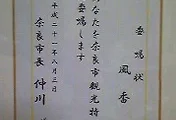 委嘱状
風香
あなたを奈良市観光特
委嘱します
平成二十一年八月三日
奈良市長 仲川